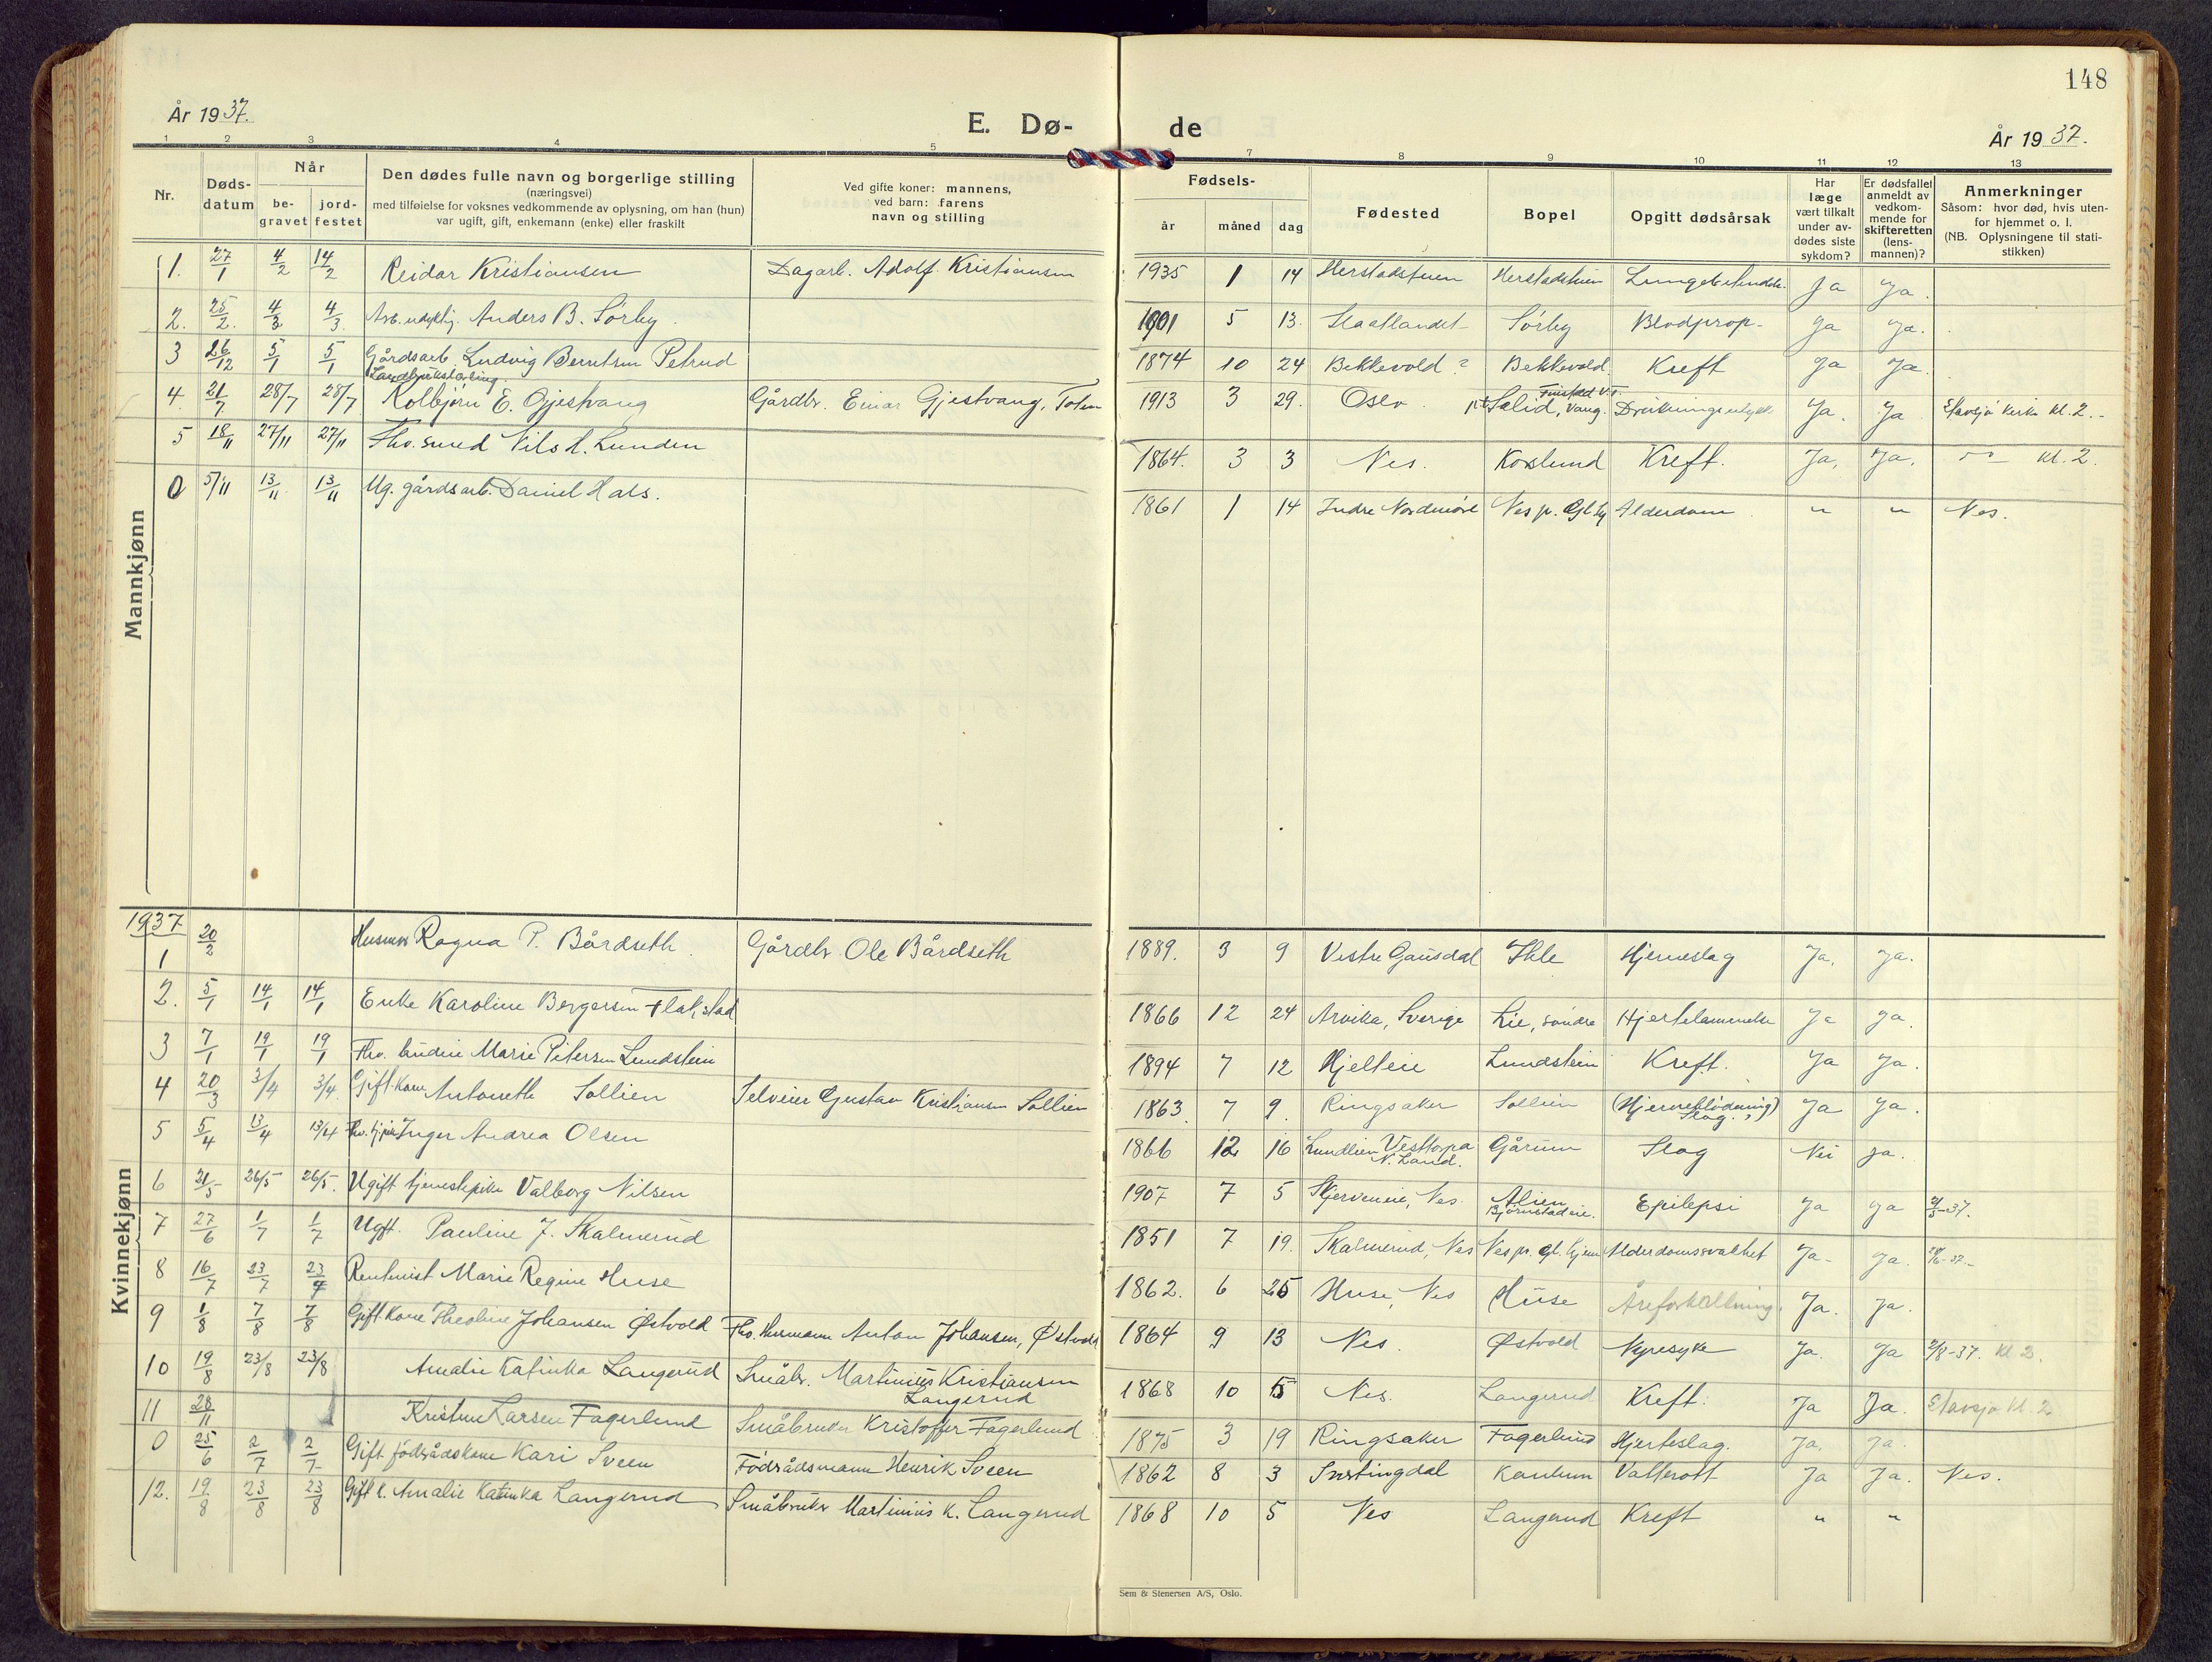 148
År 1937.
E. Dø-
de
År 1937.
1 2 3 4 5 7 8 9 10 11 12 13
Nr.
Døds-
datum
Når
be-
gravet
jord-
festet
Den dødes fulle navn og borgerlige stilling
(næringsvei)
med tilføielse for voksnes vedkommende av oplysning, om han (hun)
var ugift, gift, enkemann (enke) eller fraskilt
Ved gifte koner: mannens,
ved barn: farens
navn og stilling
Fødsels-
år
måned
dag
Fødested
Bopel
Opgitt dødsårsak
Har
læge
vært tilkalt
under av-
dødes siste
sykdom?
Er dødsfallet
anmeldt av
vedkom-
mende for
skifteretten
(lens-
mannen)?
Anmerkninger
Såsom: hvor død, hvis uten-
for hjemmet o. l.
(NB. Oplysningene til stati-
stikken)
Mannkjønn
1. 27/1 4/2 14/2 Reidar Kristiansen Dagarb. Adolf Kristiansen 1935 1 14 Herstadstuen Herstadstuen Ja Ja.
2. 25/2. 4/3 4/3. Anders B. Sørby. 1901 5 13. Sørby Blodprop- Ja Ja.
3 26/12 5/1 5/1 Gårdsarb. Ludvig Berntsen Petrud 1874 10 24 Bekkevold? Bekkevold Kreft Ja Ja.
Landbrukslærling.
4 21/7 28/7 28/7 Kolbjørn E. Gjestvang Gårdbr. Einar Gjestvang, Toten 1913 3 29. Oslo. Salid, Vang. Drukningsulykke Ja. Ja Stavsjø kirke kl. 2.-
5 18/11 27/11 27/11 Fhv. smed Nils L. Lunden 1864. 3 3 Nes. Korslund Kreft. Ja, Ja. -"- kl. 2.
0 5/11 13/11 13/11 Ug. gårdsarb. Daniel Hals. 1861 1 14 Indre Nordmøre Nes pr. Alderdom " " Nes.
Kvinnekjønn
1937
1 20/2 Husmor Ragna P. Bårdseth. Gårdbr Ole Bårdseth 1889. 3 9 Vestre Gausdal Ihle Hjerneslag Ja, Ja.
2. 5/1 14/1 14/1 Enke Karoline Bergersen Flakstad 1866 12 24 Arvika, Sverige Lie, søndre Hjertelammelse Ja Ja.
3 7/1 19/1 19/1 Fhv. budeie Marie Petersen Lundstein 1894 7 12 Hjelteie Lundstein Kreft. Ja Ja.
4 20/3 3/4 3/4. Gift kone Antonette Sollien Selveier Gustav Kristiansen Sollien 1863. 7 9. Ringsaker Sollien (Hjerneblødning) Slag. Ja Ja.
5 5/4 13/4 13/4 Inger Andrea Olsen 1866 12 16 Lundlien Vesttorpa Gårum Slag Nei Ja.
N. Land.
6 21/5 26/5 26/5. Ugift tjenestepike Valborg Nilsen 1907 7 5 Skjerveneie, Nes. Alien Epilepsi Ja Ja 21/5-37.
Bjørnstadeie.
7 27/6 1/7 1/7 Ugft. Pauline J. Skalmerud 1851 7 19. Skalmerud, Nes Nes pr. gl. hjem Alderdomssvakhet Ja- Ja.
8 16/7 23/7 23/7 Rentenist Marie Regine Huse 1862. 6 25 Huse, Nes Huse Åreforkalkning. Ja. Ja.
9 1/8 7/8 7/8 Gift kone Theoline Johansen Østvold Fhv. Husmann Anton Johansen, Østvold 1864 9 13 Nes. Østvold Nyresyke Ja. Ja 2/8-37. kl 2.
10 19/8 23/8 23/8 Amalie Katinka Langerud Småbr. Martinius Kristiansen 1868 10 5 Nes. Langerud Kreft. Ja Ja. Stavsjø kl. 2
Langerud
11 28/11 Kristine Larsen Fagerlund Småbruker Kristoffer Fagerlund 1875 3 19 Ringsaker Fagerlund Hjerteslag. Ja. Ja.
0 25/6 2/7 2/7 Gift fødrådskone Kari Sveen Fødrådsmann Henrik Sveen 1862 8 3 Snertingdal Kantum Vatterott Ja Ja. Nes.
12. 19/8 23/8 23/8 Gift k. Amalie Katinka Langerud Småbruker Martinius K. Langerud 1868 10 5 Nes Langerud Kreft " "
Sem & Stenersen A/S, Oslo.